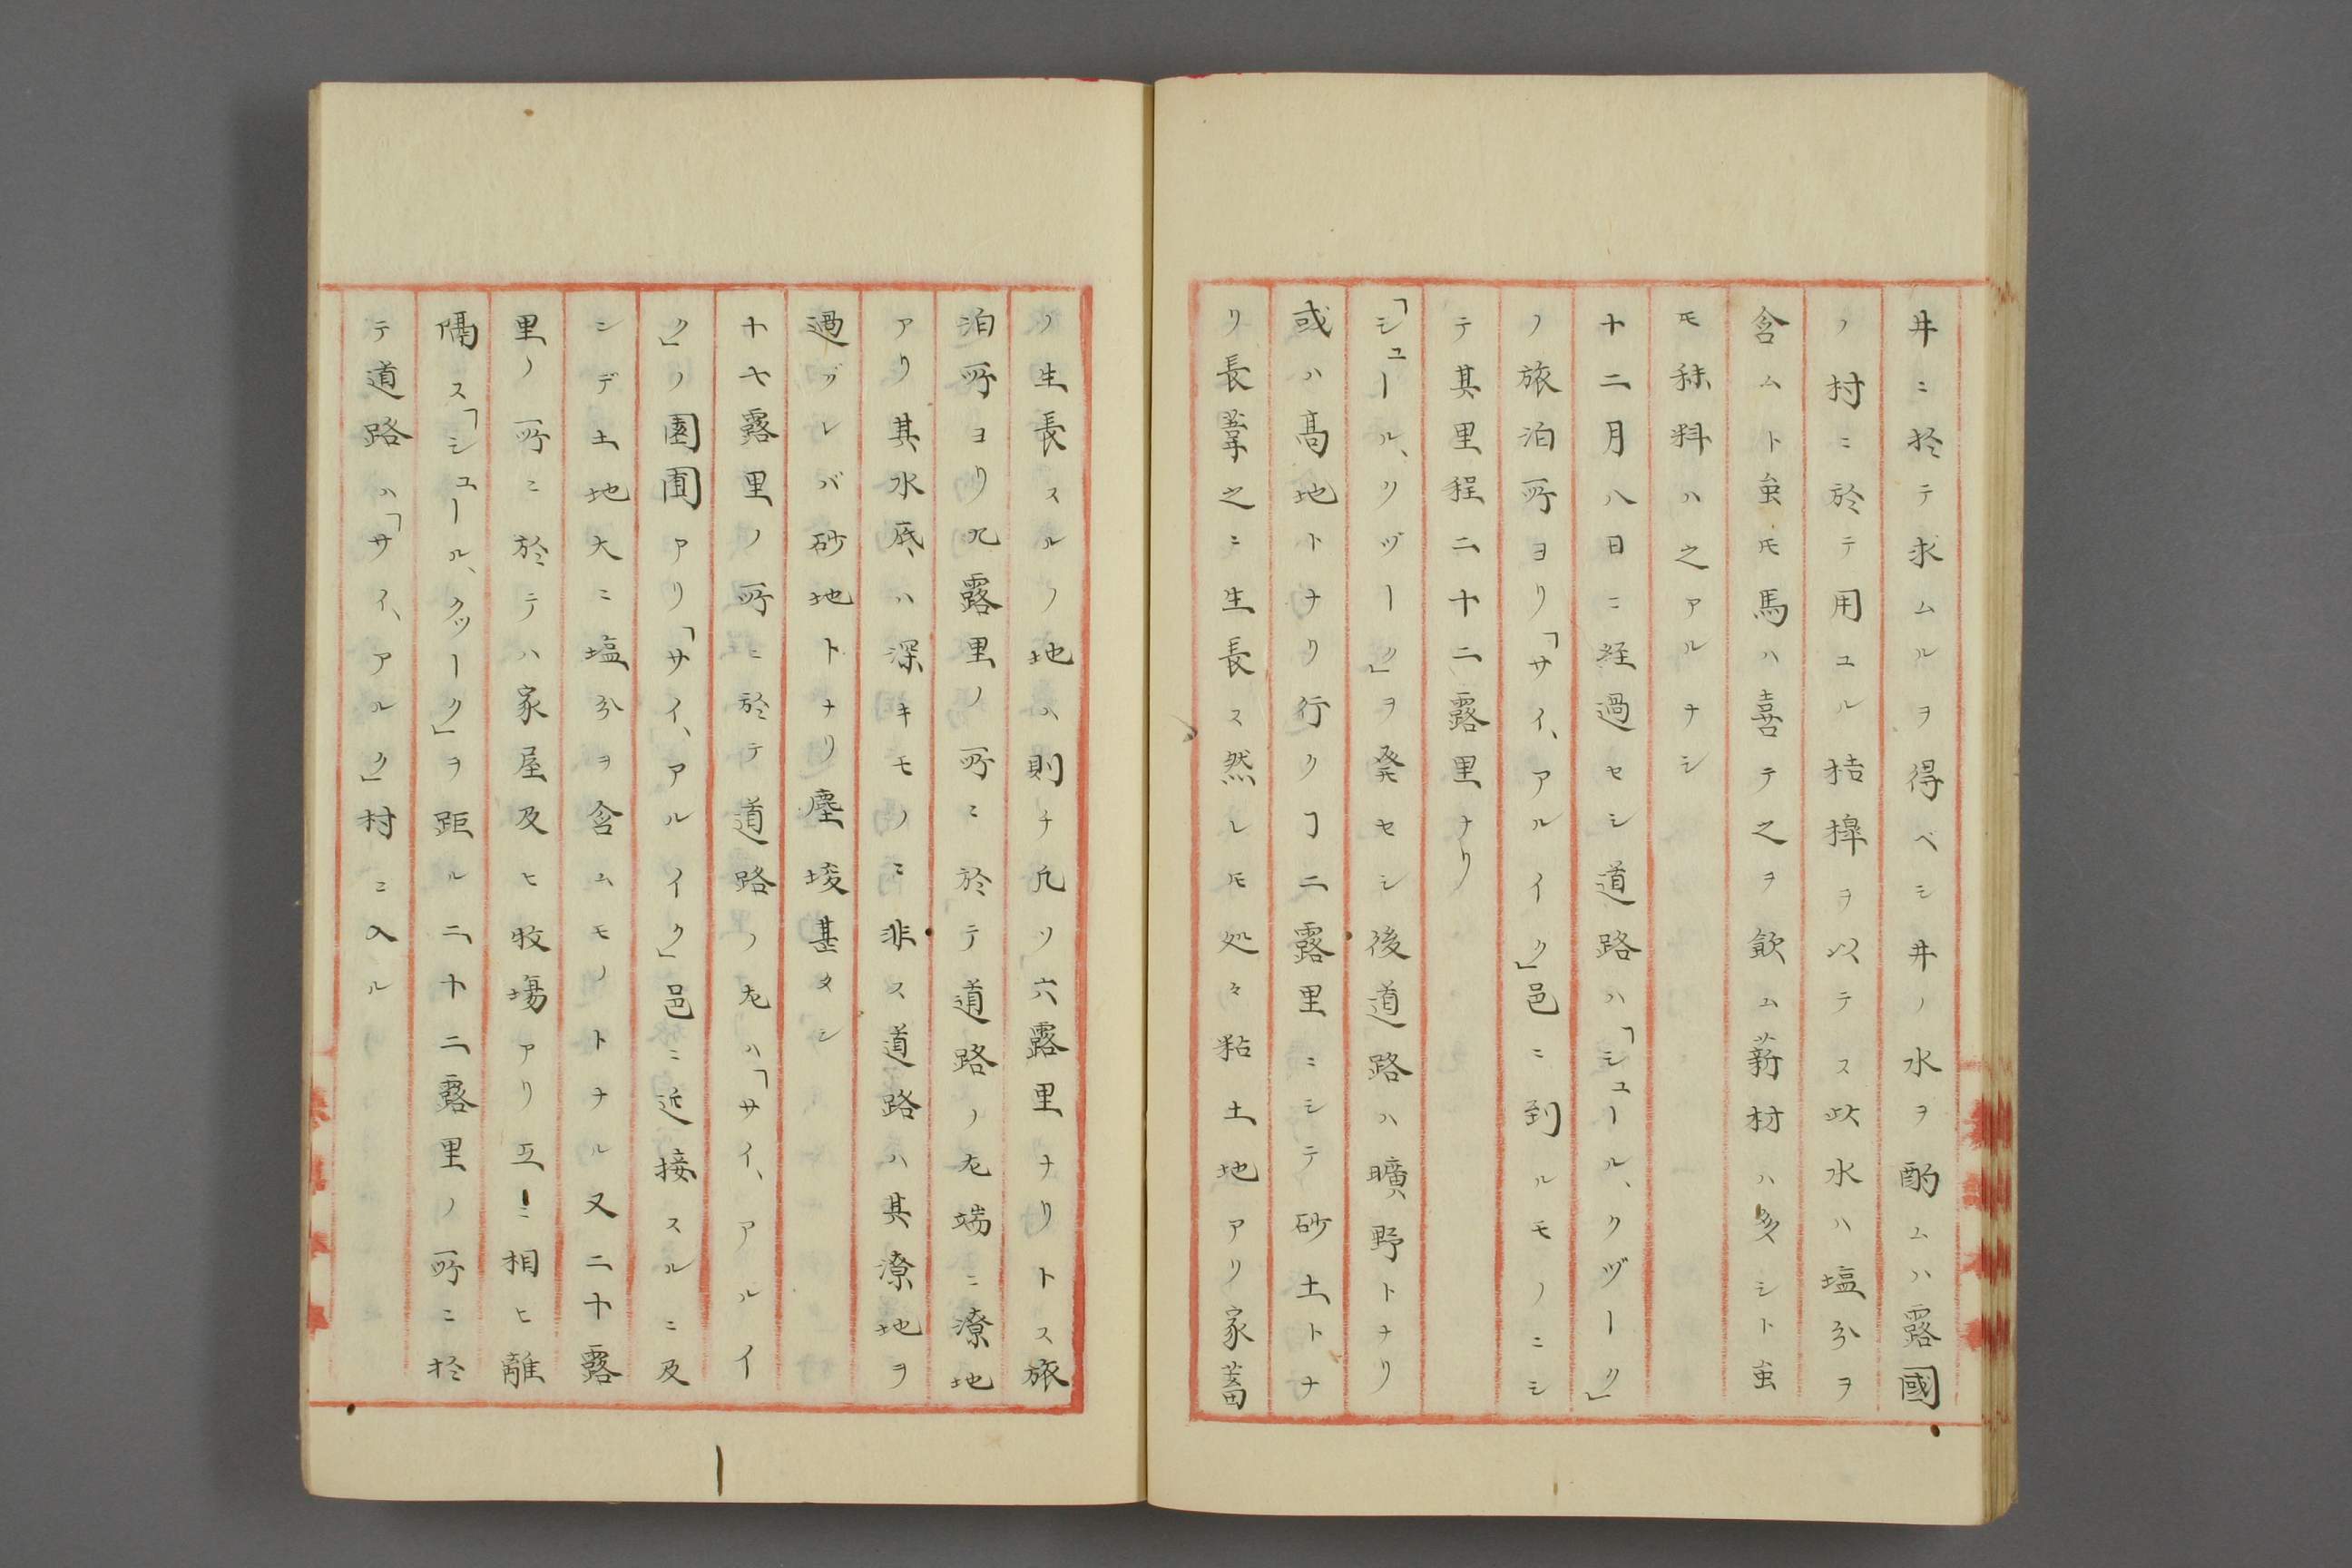 井ニ於テ求ムルヲ得ベシ井ノ水ヲ酌ムハ露國
ノ村ニ於テ用ユル桔槹ヲ以テス此水ハ塩分ヲ
含ムト虽モ馬ハ喜テ之ヲ飲ム薪材ハ多シト虽
モ秣料ハ之アルナシ
十二月八日ニ経過セシ道路ハ「シユール、クヅーク」
ノ旅泊所ヨリ「サイ、アルイク」邑ニ到ルモノニシ
テ其里程二十二露里ナリ
「シユール、クヅーク」ヲ発セシ後道路ハ曠野トナリ
或ハ高地トナリ行クヿ二露里ニシテ砂土トナ
リ長葦之ニ生長ス然レモ処々粘土地アリ家蓄
ノ生長スルノ地ハ則チ凡ソ六露里ナリトス旅
泊所ヨリ九露里ノ所ニ於テ道路ノ左端ニ潦地
アリ其水底ハ深キモノニ非ス道路ハ其潦地ヲ
過グレバ砂地トナリ塵埃甚タシ
十七露里ノ所ニ於テ道路ノ左ハ「サイ、アルイ
ク」ノ園圃アリ「サイ、アルイク」邑ニ近接スルニ及
ンデ土地大ニ塩分ヲ含ムモノトナル又二十露
里ノ所ニ於テハ家屋及ヒ牧場アリ互ニ相ヒ離
隔ス「シユール、クツーク」ヲ距ル二十二露里ノ所ニ於
テ道路ハ「サイ、アルク」村ニ入ル